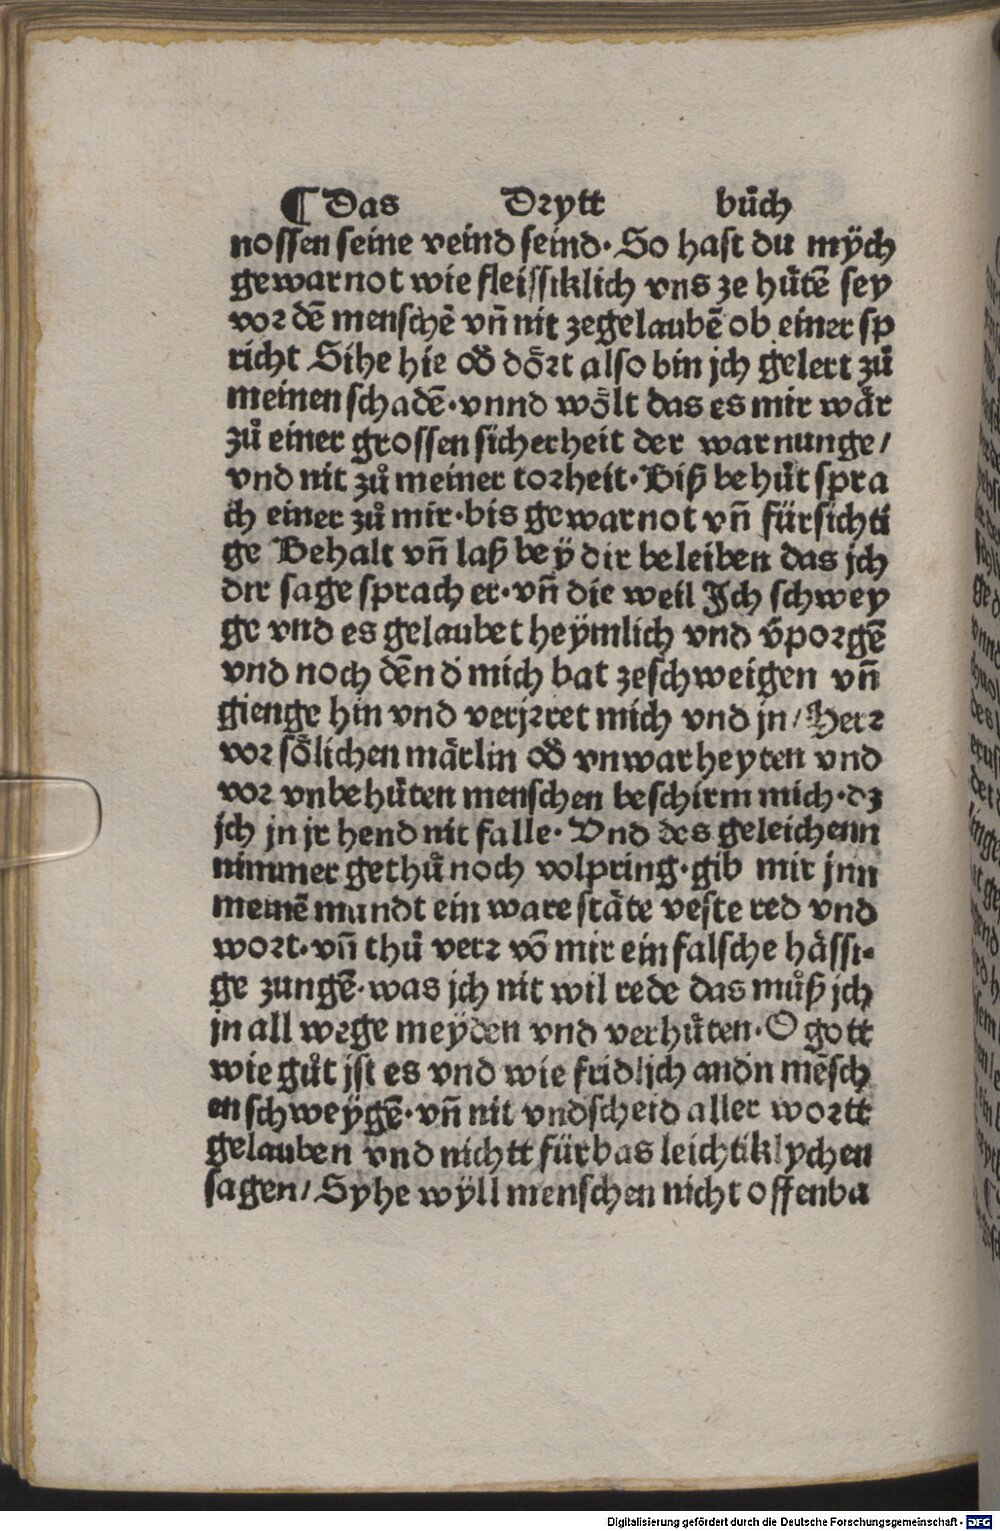 ¶ Das Drytt bůch
nossen seine veind seind· So hast du mÿch
gewarnot wie fleissiklich vns ze hůtē sey
vor dē menschē vn̄ nit zegelaubē ob einer sp
richt Sihe hie od̄ dört also bin jch gelert zů
meinen schadē·vnnd wölt das es mir wär
zů einer grossen sicherheit der warnunge/
vnd nit zů meiner torheit·Biß behůt spra
ch einer zů mir·bis gewarnot vn̄ fürsichti
ge Behalt vn̄ laß beÿ dir beleiben das jch
dir sage sprach er·vn̄ die weil Jch schwey
ge vnd es gelaubet heÿmlich vnd v̄porgē
vnd noch dēn d̄ mich bat zeschweigen vn̄
gienge hin vnd verjrret mich vnd jn/Herr
vor sölichen märlin od̄ vnwarheyten vnd
vor vnbehůten menschen beschirm mich·dz
jch jn jr hend nit falle· Vnd des geleichenn
nimmer gethů noch volpring·gib mir jnn
meinē mundt ein ware stäte veste red vnd
wort·vn̄ thů verr vō mir ein falsche hässi-
ge zungē·was jch nit wil rede das můß jch
jn all wege meyden vnd verhůten·O gott
wie gůt jst es vnd wie fridljch andn mēsch
en schweÿgē·vn̄ nit vndscheid aller wortt
gelauben vnd nichtt fürbas leichtiklychen
sagen/Syhe wÿll menschen nicht offenba
Digitalisierung gefördert durch die Deutsche Forschungsgemeinschaft - DFG